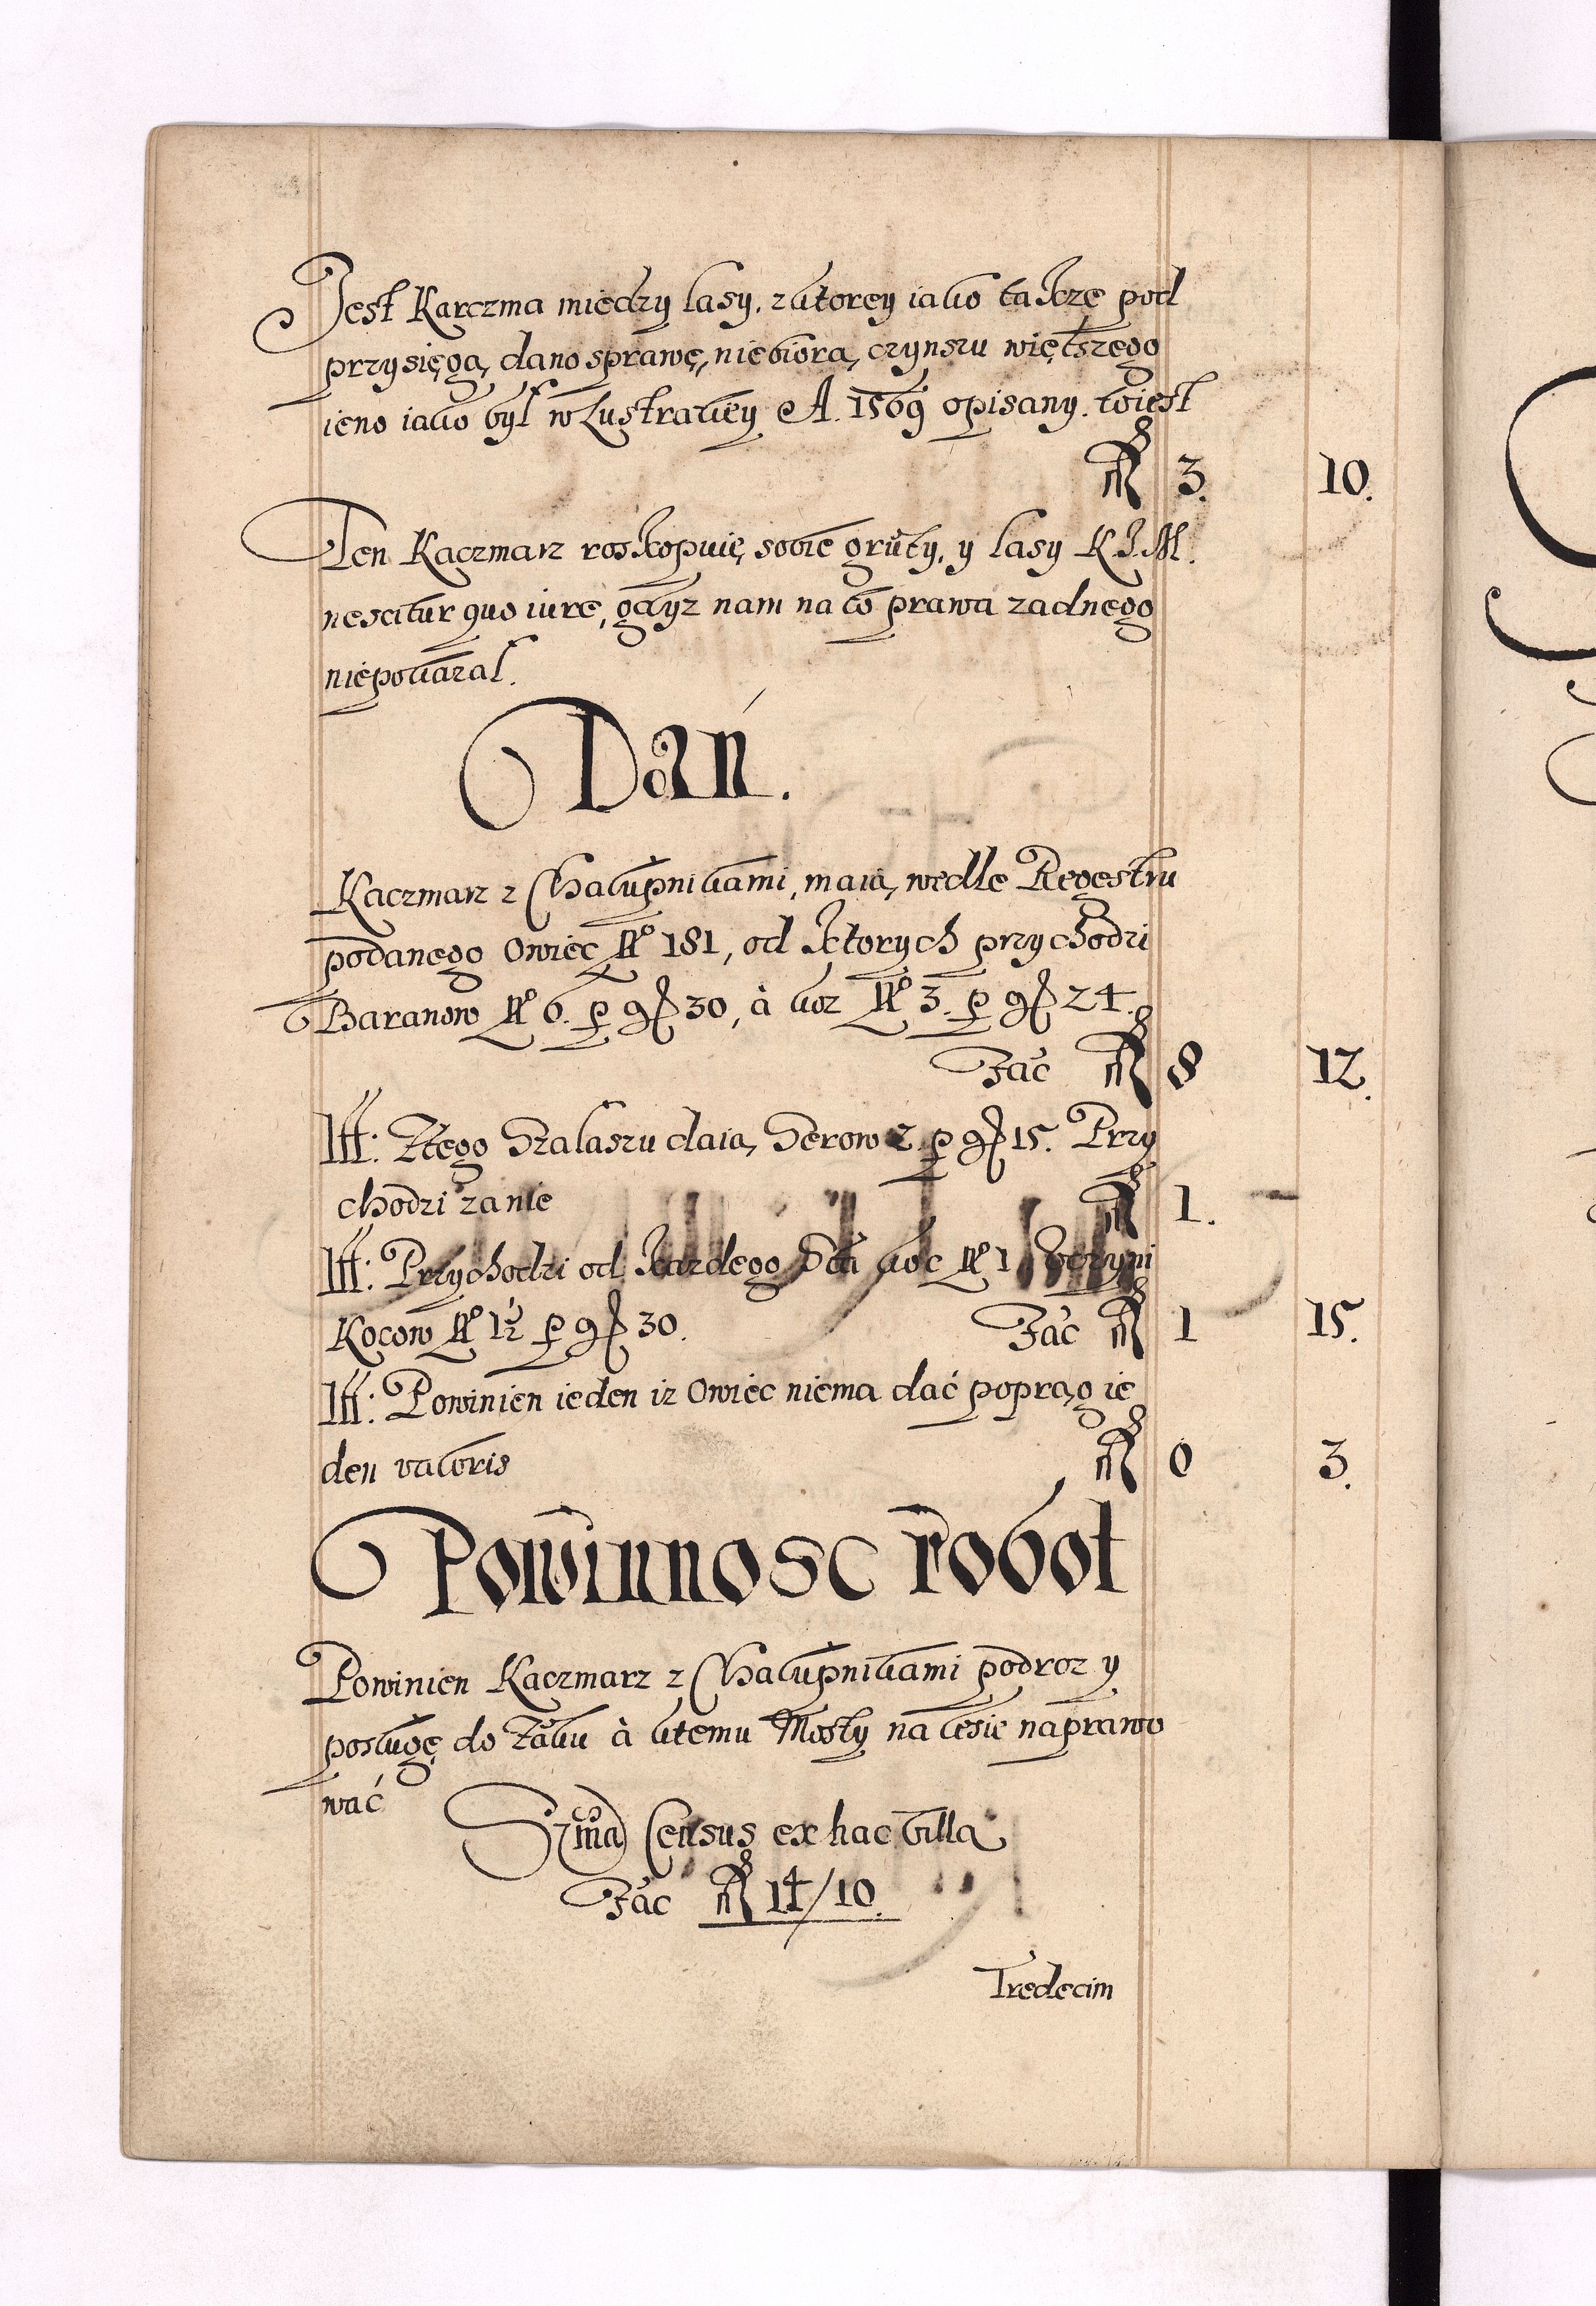 Jest Karczma miedzy lasy, z ktorey iako takze pod
przysięgą dano sprawę, niebiorą czynszu więtszego
ieno iako był w Lustratiey A. 1569 opisany. to iest
fl 3. 10.
Ten Kaczmarz roskopuię sobie grūty, y lasy K. J. M.
nescitur quo iure, gdyz nam na to prawa zadnego
niepokazal.
Dań.
Kaczmarz z Chałupnikami, maią wedle Regestru
podanego Owiec No 181, od ktorych przychodzi
Baranow No 6. p gr 30, à koz No 3. p gr 24.
Fac fl 8 12.
Itē: Z tego Szalaszu daią Serow 2. p gr 15. Przy
chodzi za nie fl 1. -
Itē: Przychodzi od kazdego Sta koc No 1 Vczyni
Kocow No 1½ p gr 30. Fac fl 1 15.
Itē: Powinien ieden iz Owiec niema dać poprąg ie
den valoris fl 0 3.
Powinnosc robot
Powinien Kaczmarz z Chałupnikami podroz y
posługę do Zāku à ktemu Mosty na lesie naprawo
wać
Suma Census ex hac villa
Fac fl 14/10.
Tredecim